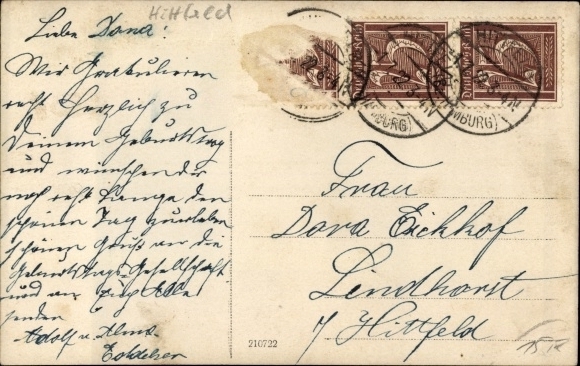 Hittfeld
Liebe Dora!
Wir Gratulieren
recht Herzlich zu
Deinem Geburtstag
und wünschen dir
noch recht lange den
schönen Tag zu erleben
schönen Gruß an die
Geburtstags-Gesellschaft
und an Euch Alle
senden
Adolf u. Alma
Frau
Dora Eickhof
Lindhorst
/ Hittfeld
210722